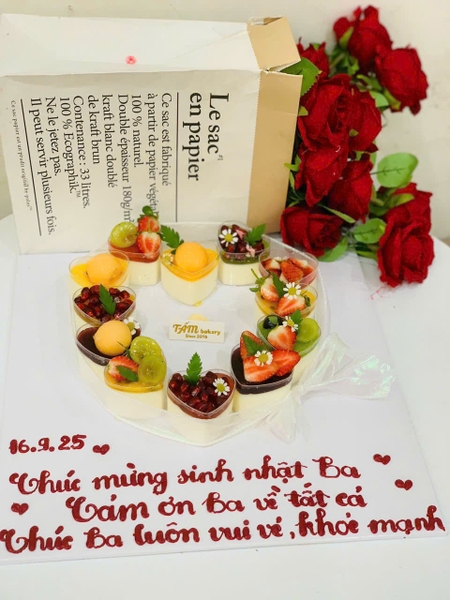 Le sac
en papier
Ce sac est fabriqué
à partir de papier végétal
100 % naturel.
Double épaisseur 180g/m²
kraft blanc doublé
de kraft brun
Contenance : 33 litres.
100 % Ecographik.™
Ne le jetez pas.
Il peut servir plusieurs fois.
TÂM bakery
Since 2018
16.9.25
Chúc mừng sinh nhật Ba
Cám ơn Ba về tất cả
Chúc Ba luôn vui vẻ, khỏe mạnh